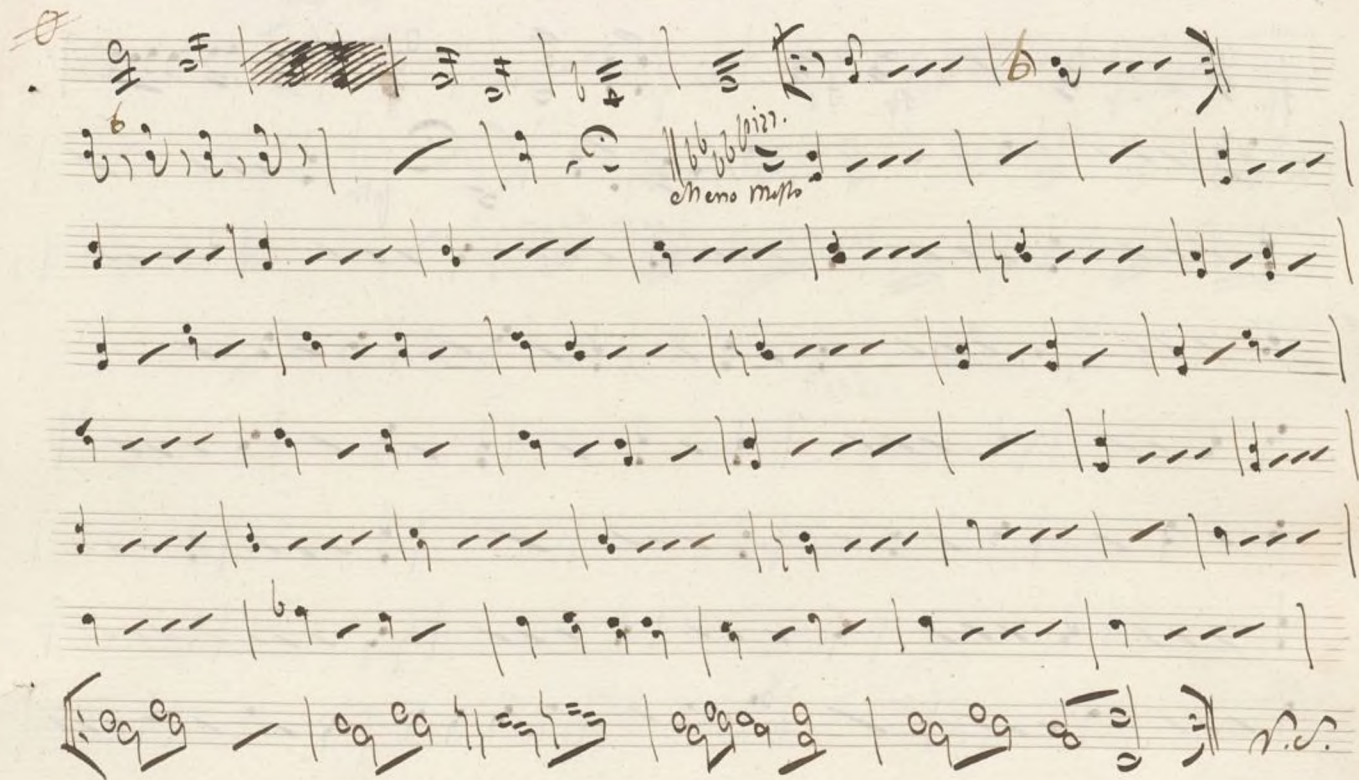 pizz.
Meno Mosso
V.S.